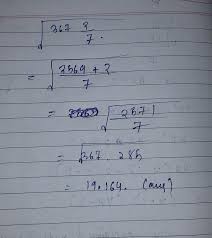 √367 2/7.
= √(2569 + 2)/7
= √2571/7
= √367.285
= 19.164. (ans)